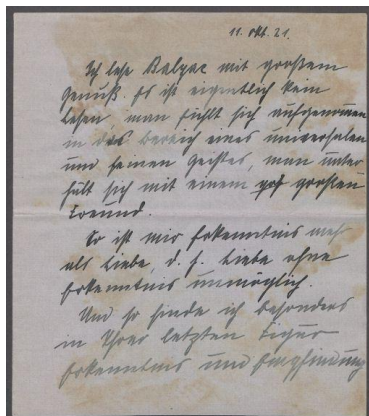 11. Okt. 21.
Ich lese Balzac mit großem
Genuß. Es ist eigentlich kein
Lesen man fühlt sich aufgenommen
in das Bereich eines universalen
und feinen Geistes, man unter
hält sich mit einem großen
Freund.
So ist mir Erkenntnis mehr
als Liebe, d. h. Liebe ohne
Erkenntnis unmöglich.
Und so finde ich besonders
in Ihrer letzten Figur
Erkenntnis und Empfindung